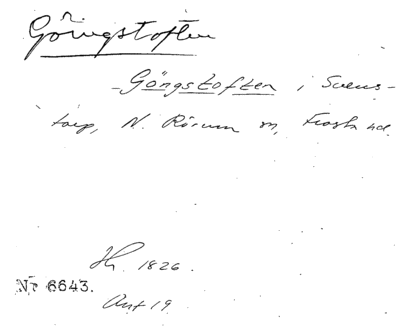 Göingstoften
Göngstoften i Svens-
torp, N. Rörum sn, Frosta hd.
Hr. 1826.
Nr 6643.
Ant 19